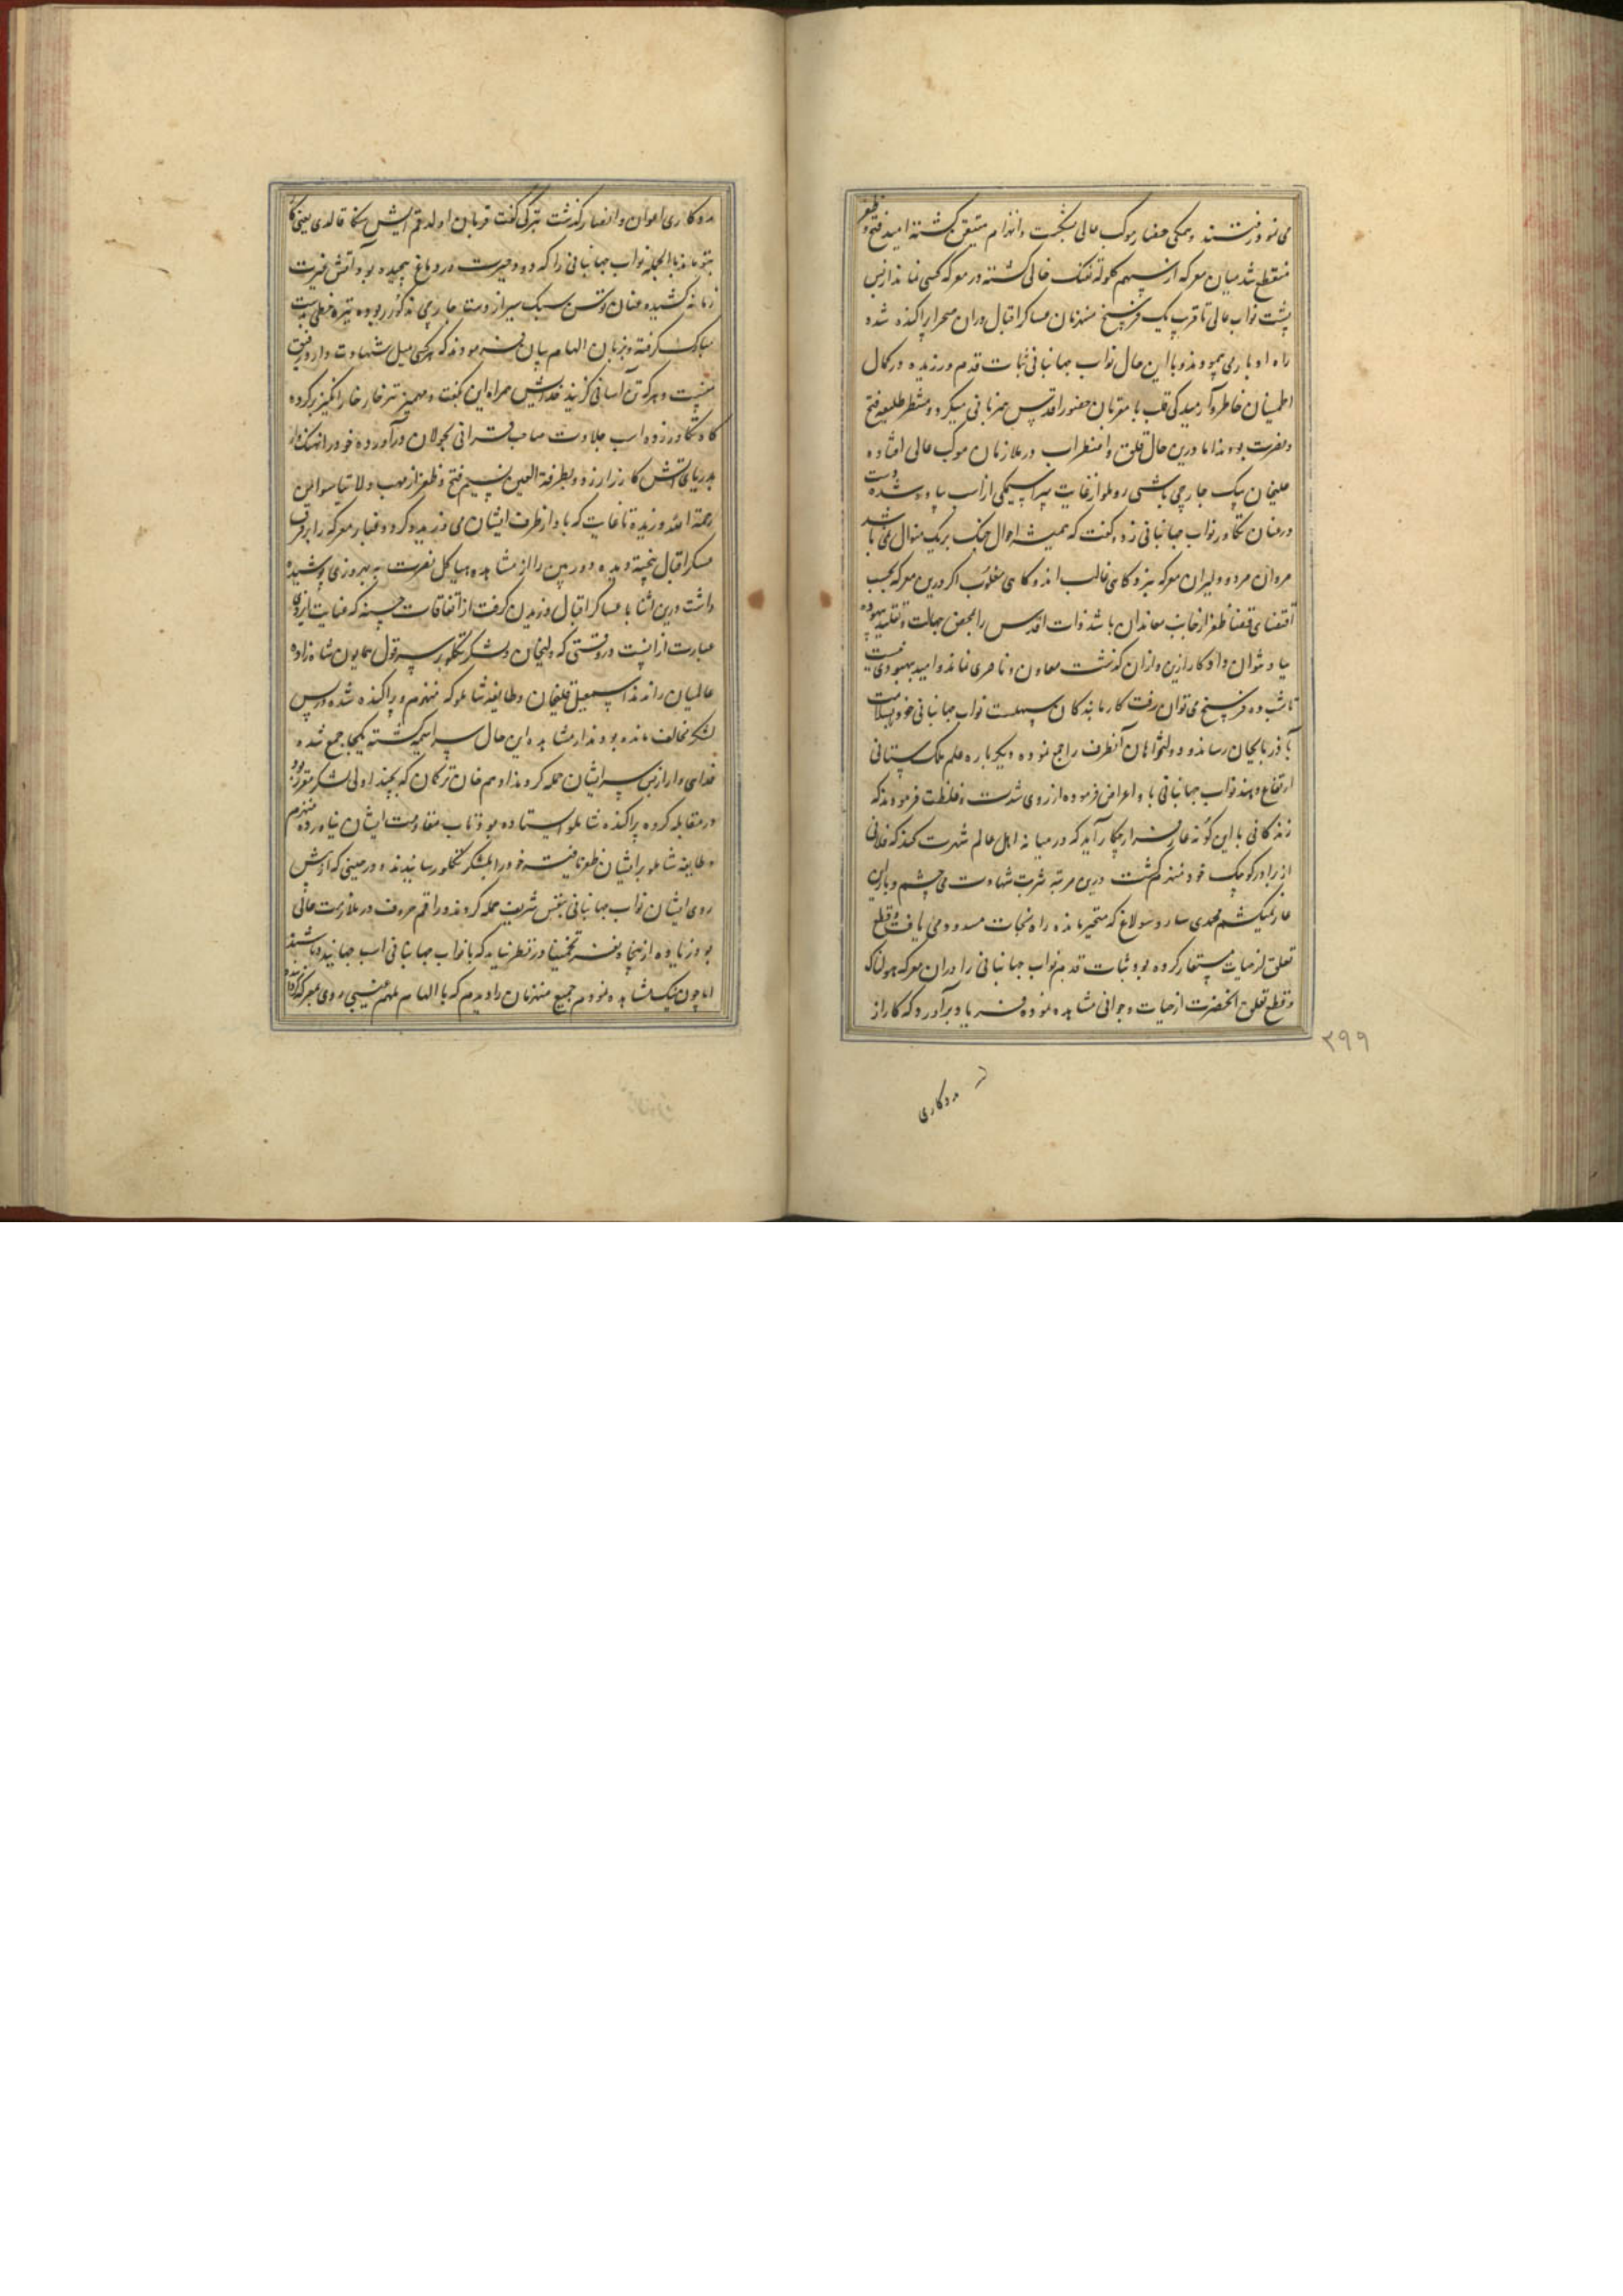 می نمودند رفتند و همکی حضار موکب عالی بشکست و انهزام متیقن کشته امید فتح و ظفر
منقطع شد میان معرکه از سهم کلوله تفنک خالی کشته در معرکه کسی نماند از پس
پشت نواب عالی تا قرب یک فرسخ منهزمان عساکر اقبال دران صحرا پراکنده شده
راه ادبار می پیمودند و با این حال نواب جهانبانی ثبات قدم ورزیده در کمال
اطمینان خاطر و آرمیدکی قلب با مقربان حضور اقدس همزبانی میکرد و منتظر طلیعه فتح
و نصرت بودند اما درین حال قلق و اضطراب در ملازمان موکب عالی افتاده
علیخان بیک جارچی باشی روملو از غایت سراسیمکی از اسب پیاده شده دست
در عنان تکاور نواب جهانبانی زد و کفت که همیشه احوال جنک بریک منوال نمی باشد
مردان مرد و دلیران معرکه نبرد کاهی غالب اند و کاهی مغلوب اکر درین معرکه بحسب
اقتضای قضا ظفر از جانب معاندان باشد ذات اقدس را بمحض جهالت و تقلید بیهوده
بباد نتوان داد کار ازین و ازان کذشت معاون و ناصری نماند و امید بهبودی نیست
تا شب ده فرسخ می توان رفت کار ما بندکان سهلست نواب جهانبانی خود بسلامت
بآذربایجان رساند و دولتخواهان آنطرف را جمع نموده دیکر باره علم ملک ستانی
ارتفاع دهند نواب جهانبانی با و اعراض فرموده از روی شدت و غلظت فرمودند که
زندکانی با این کونه عار فرار بچکار آید که در میانه اهل عالم شهرت کند که فلانی
از برادر کوچک خود منهزم کشت درین مرتبه شربت شهادت می چشم و بار این
عار نمیکشم محمدی ساروسولاغ که متحیر مانده راه نجات مسدود می یافت و قطع
تعلق از حیات مستعار کرده بود ثبات قدم نواب جهانبانی را دران معرکه هولناک
و قطع تعلق آنحضرت از حیات و جوانی مشاهده نموده فریاد برآورد که کار از
۲۹۹
مددکاری
مددکاری اعوان و انصار کذشت بترکی کفت قربان اولدقم ایش سکا قالدی یعنی کار
بتو ماند بالجمله نواب جهانبانی را که دود غیرت در دماغ پیچیده بود آتش غیرت
زبانه کشیده عنان توسن سبک سیر از دست جارچی مذکور ربوده نیزه خطی بدست
مبارک کرفته و بزبان الهام بیان فرمودند که هر کس میل شهادت دارد رفیق
منست و هر که تن آسانی کزیند خدایش همراه این بکفت و مهمیز تیز خار خارا انکیز برکرده
کاه تکاور زده اسب جلادت صاحب قرانی بجولان درآورده خود را نهنک وار
بدریای آتش کارزار زد و بطرفة العین نسیم فتح و ظفر از مهب ولا تیاسوا من
رحمة الله وزیده تا غایت که باد از طرف ایشان می وزید و کرد و غبار معرکه را بر فرق
عسکر اقبال بیخته دیده دوربین را از مشاهده هیاکل نصرت و بهروزی پوشیده
داشت درین اثنا با عساکر اقبال وزیدن کرفت از اتفاقات حسنه که عنایت ایزدی
عبارت از انست در وقتی که ولیخان و لشکر تکلو بر سر قول همایون شاه زاده
عالمیان راندند اسمعیل قلیخان و طایفه شاملو که منهزم و پراکنده شده در پس
لشکر مخالف مانده بودند از مشاهده این حال سراسیمه کشته یکجا جمع شده
فدایی وار از پس سر ایشان حمله کردند ادهم خان ترکمان که بچند اولی لشکر مقرر بود
در مقابله کروه پراکنده شاملو ایستاده بود تاب مقاومت ایشان نیاورده منهزم
و طایفه شاملو بر ایشان ظفر یافته خود را بلشکر تکلو رسانیدند و در حینی که از پیش
روی ایشان نواب جهانبانی بنفس شریف حمله کردند و راقم حروف در ملازمت عالی
بود زیاده از پنجاه نفر تخمینا در نظر نیامد که با نواب جهانبانی اسب جهانیده باشند
اما چون نیک مشاهده نمودم جمیع منهزمان را دیدم که با الهام ملهم غیبی روی بمعرکه کرده